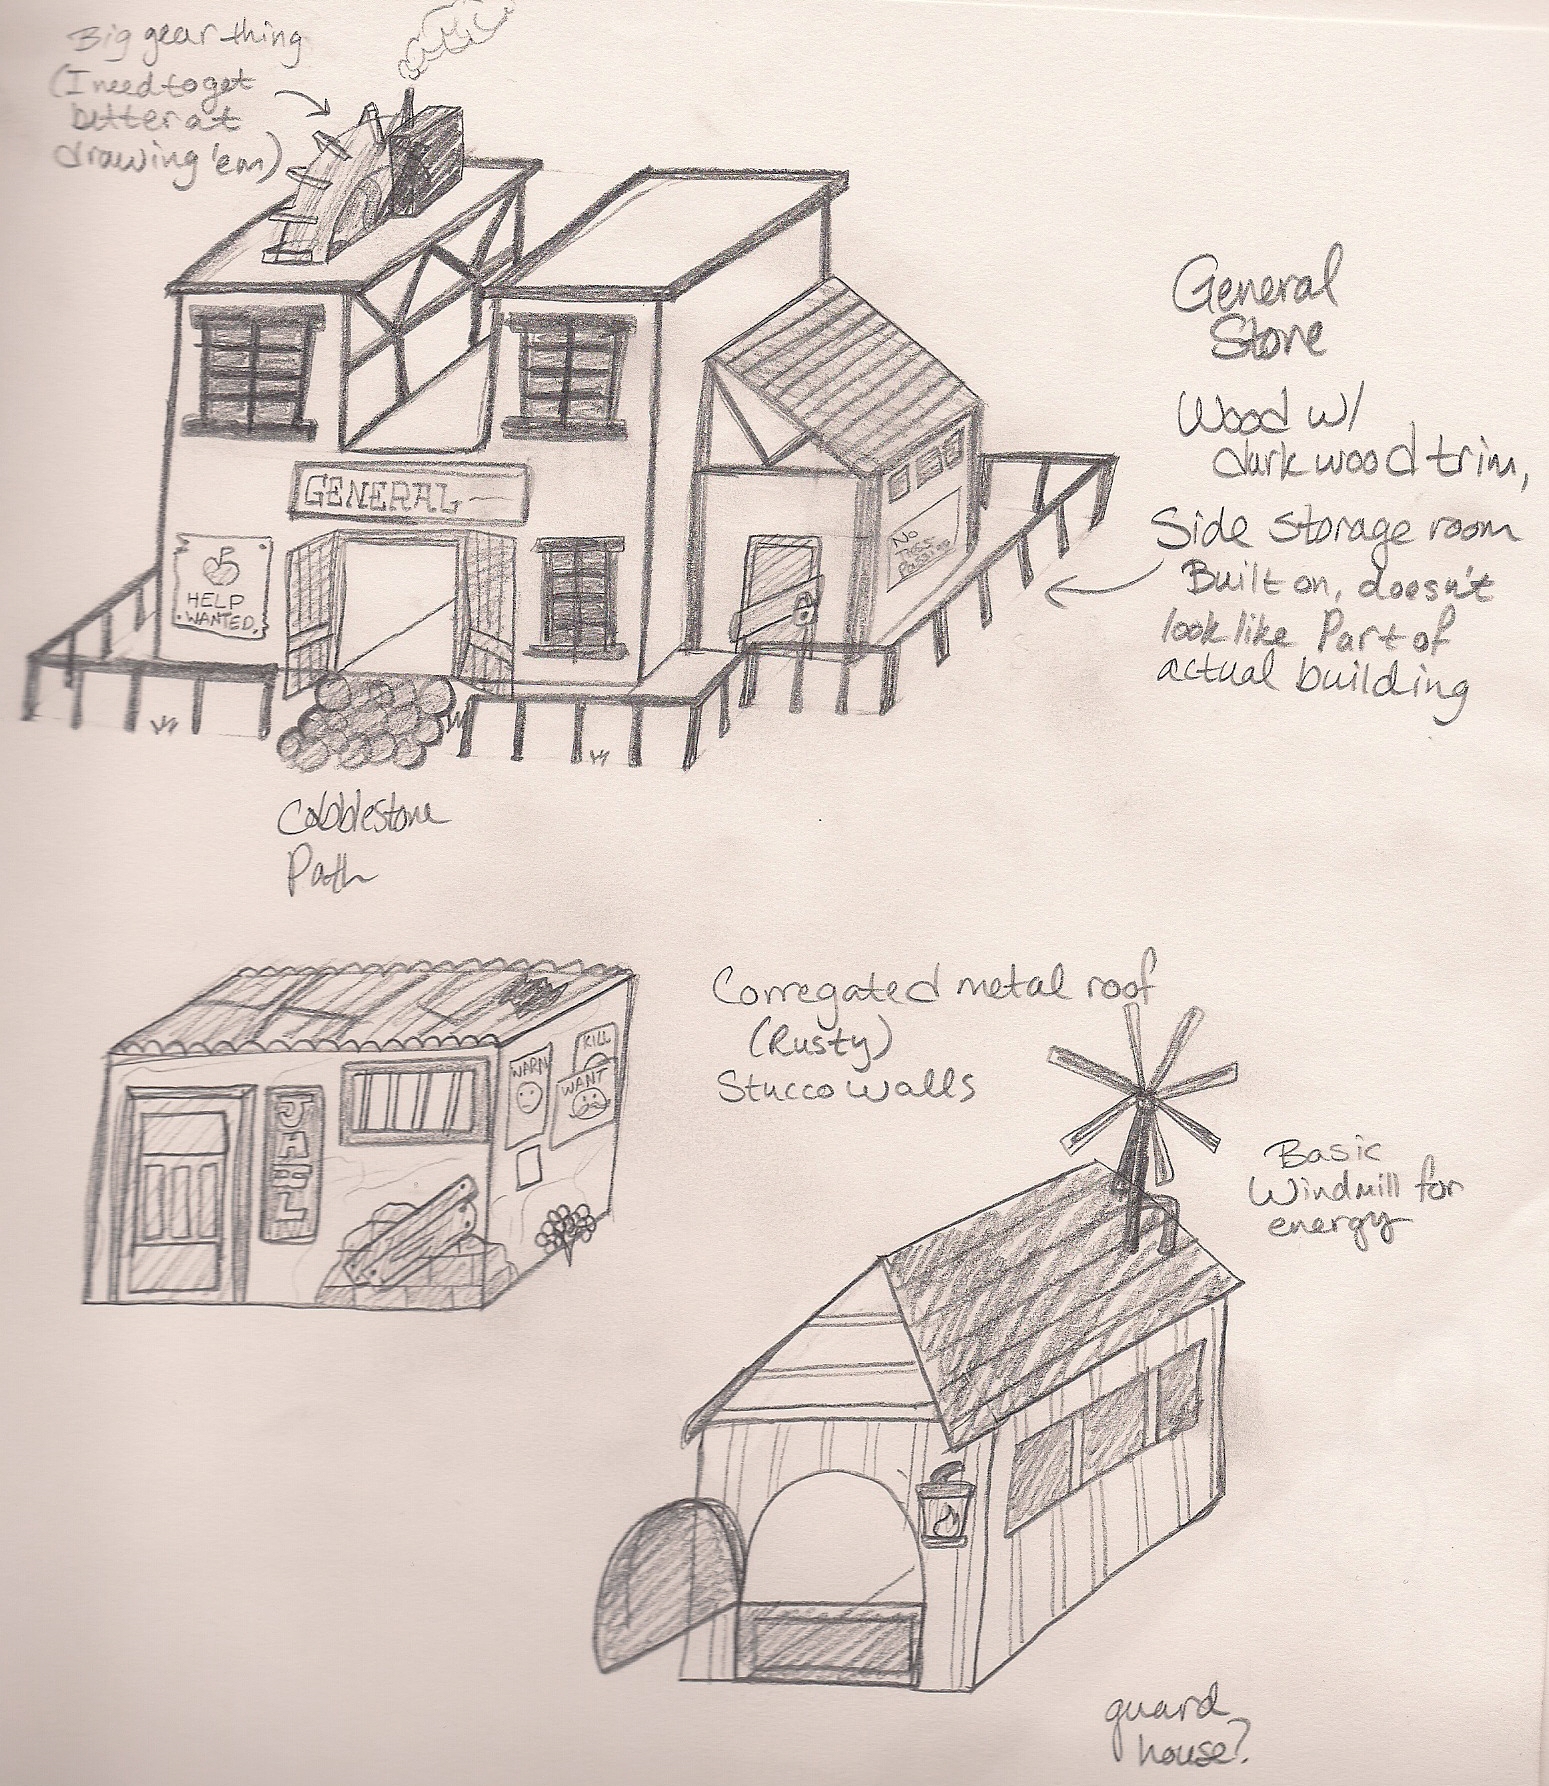 Big gear thing
(I need to get
better at
drawing 'em)
GENERAL
HELP
WANTED.
No
Tress-
Passing
General
Store
Wood w/
dark wood trim,
Side storage room
Built on, doesn't
look like Part of
actual building
Cobblestone
Path
Corregated metal roof
(Rusty)
Stucco walls
JAIL
WARN
KILL
WANT
Basic
Windmill for
energy
guard
house?